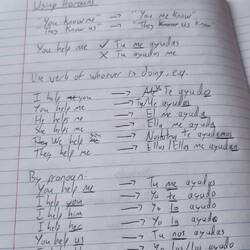 Using Pronouns
"You know me" → "You me know"
"They know us" → "They us know"
You help me ✓ Tu me ayudas
X Tu ayudas me
Use verb of whoever is doing, e.g.
I help you → Yo te ayudo
You help me → Tu me ayudas
He helps me → El me ayuda
She helps me → Ella me ayuda
We help → te ayudamos
They help me → Ellos/Ellas me ayudan
By pronoun:
You help me → Tu me ayudas
I help you → Yo te ayudo
I help him → Yo lo ayudo
I help her → Yo la ayudo
You help us → Tu nos ayudas